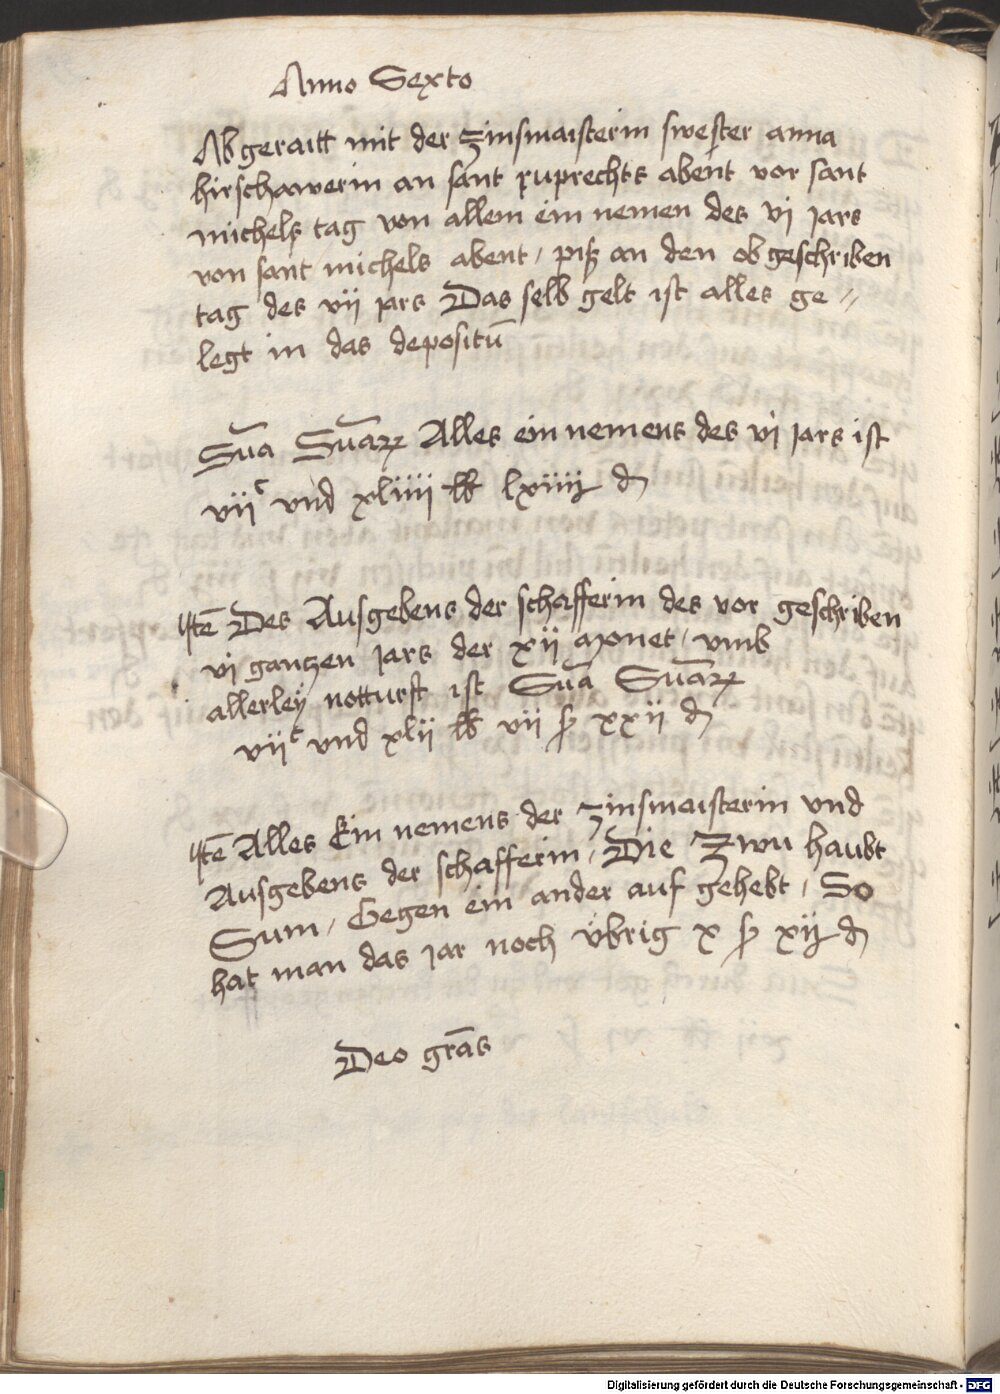 Anno Sexto
Abgeraitt mit der zinsmaisterin swester anna
hirschawerin an sant ruprechts abent vor sant
michels tag von allem ein nemen des vi jars
von sant michels abent / piß an den obgeschriben
tag des vij jars Das selb gelt ist alles ge //
legt in das depositū
Sūa Sūaꝝ Alles ein nemens des vi jars ist
vijᶜ vnd xliiij lb lxiiij ₰
Itē Des Ausgebens der schafferin des vor geschriben
vi gantzen jars der xij monet / vmb
allerley notturft ist Sūa Sūaꝝ
vijᶜ vnd xlij lb vij ß xxij ₰
Itē Alles Ein nemens der zinsmaisterin vnd
Ausgebens der schafferin / Die Zwu haubt
Sum / Gegen ein ander auf gehebt / So
hat man das jar noch übrig x ß xij ₰
Deo grās
Digitalisierung gefördert durch die Deutsche Forschungsgemeinschaft - DFG